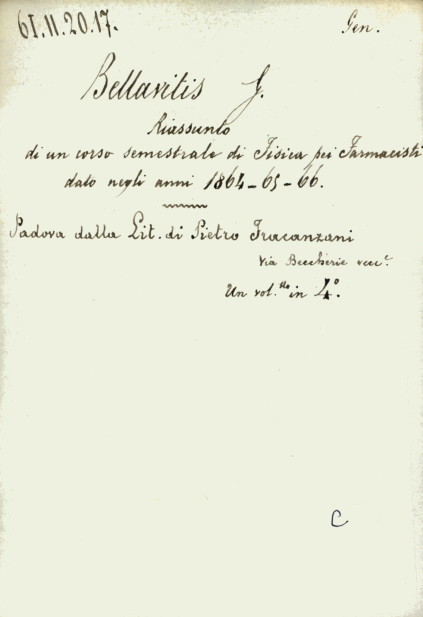 61.11.20.17.
Gen.
Bellavitis G.
Riassunto
di un corso semestrale di Fisica pei Farmacisti
dato negli anni 1864-65-66.
Padova dalla Lit. di Pietro Fracanzani
Via Beccherie vecc.e
Un vol.tto in 4.°
C